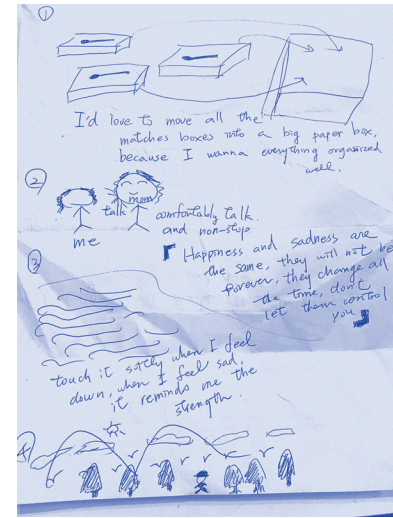 ①
I'd love to move all the
matches boxes into a big paper box,
because I wanna everything organized
well.
②
mom
talk
me
comfortably talk.
and non-stop
「Happiness and sadness are
the same, they will not be
forever, they change all
the time, don't
let them control
you」
③
touch it softly when I feel
down, when I feel sad.
it reminds me the
strength.
④